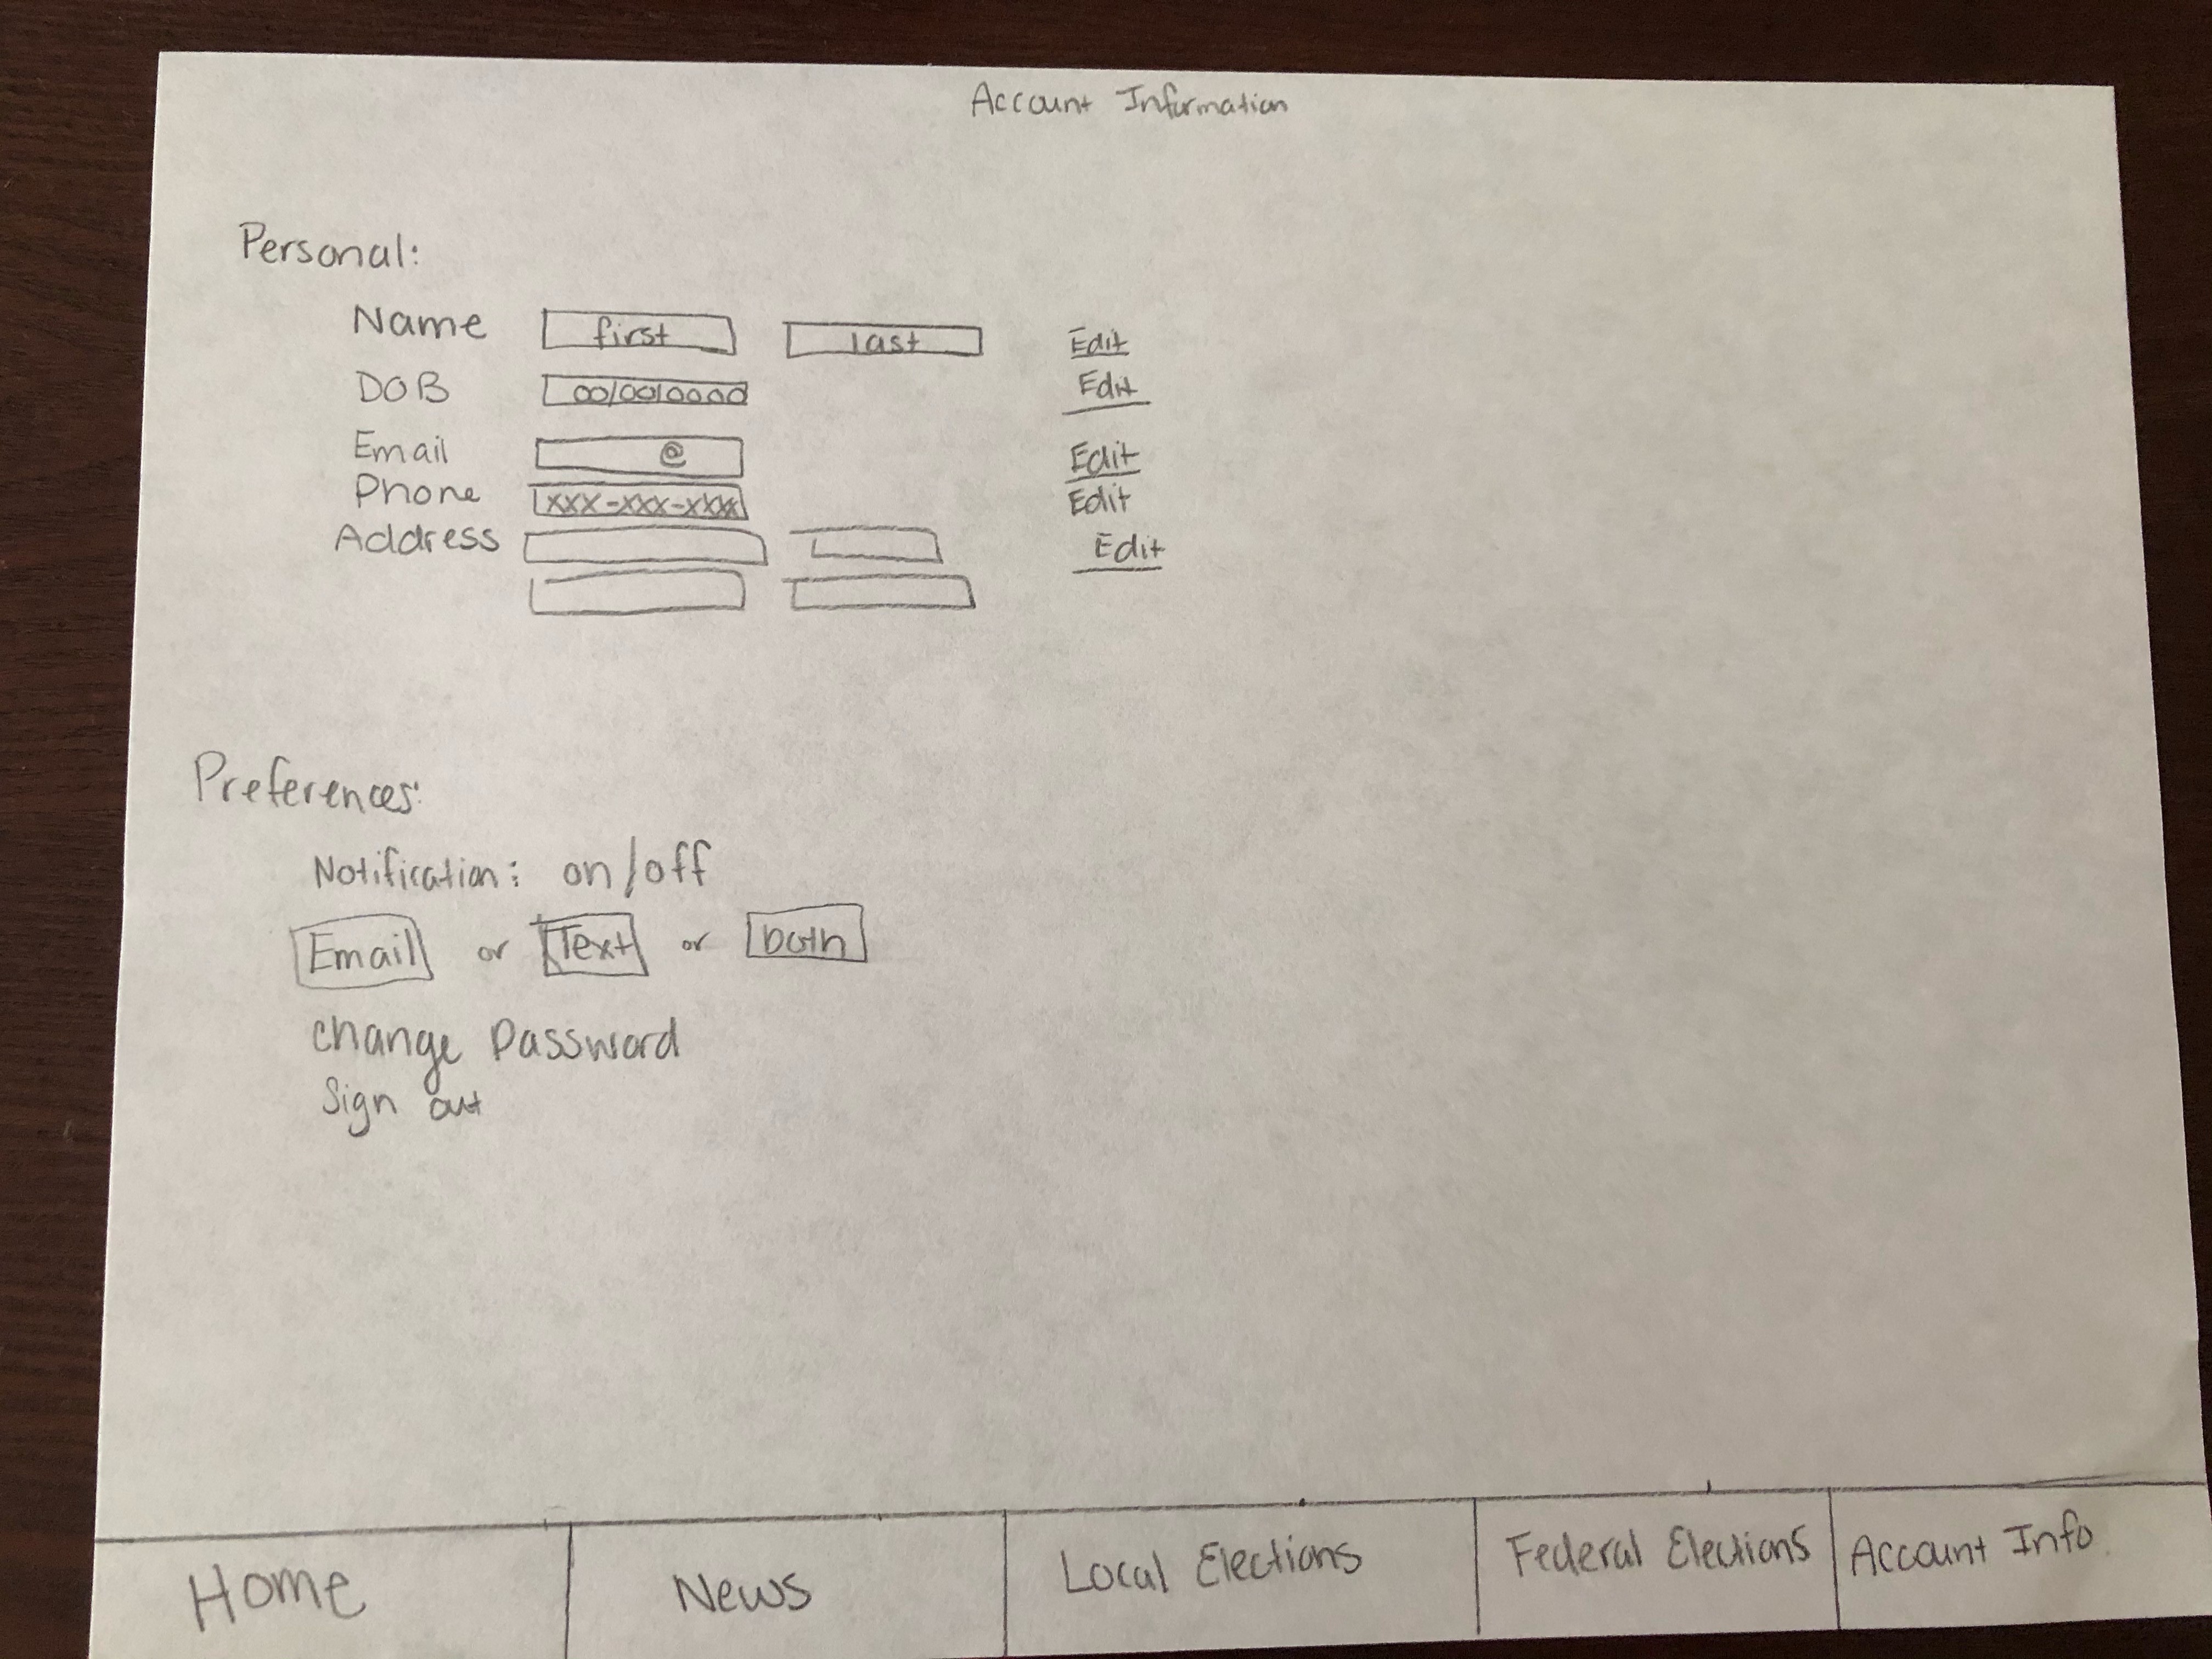 Account Information
Personal:
Name first last Edit
DOB 00/00/0000 Edit
Email @ Edit
Phone xxx-xxx-xxxx Edit
Address Edit
Preferences:
Notification: on/off
Email or Text or both
change Password
Sign out
Home News Local Elections Federal Elections Account Info